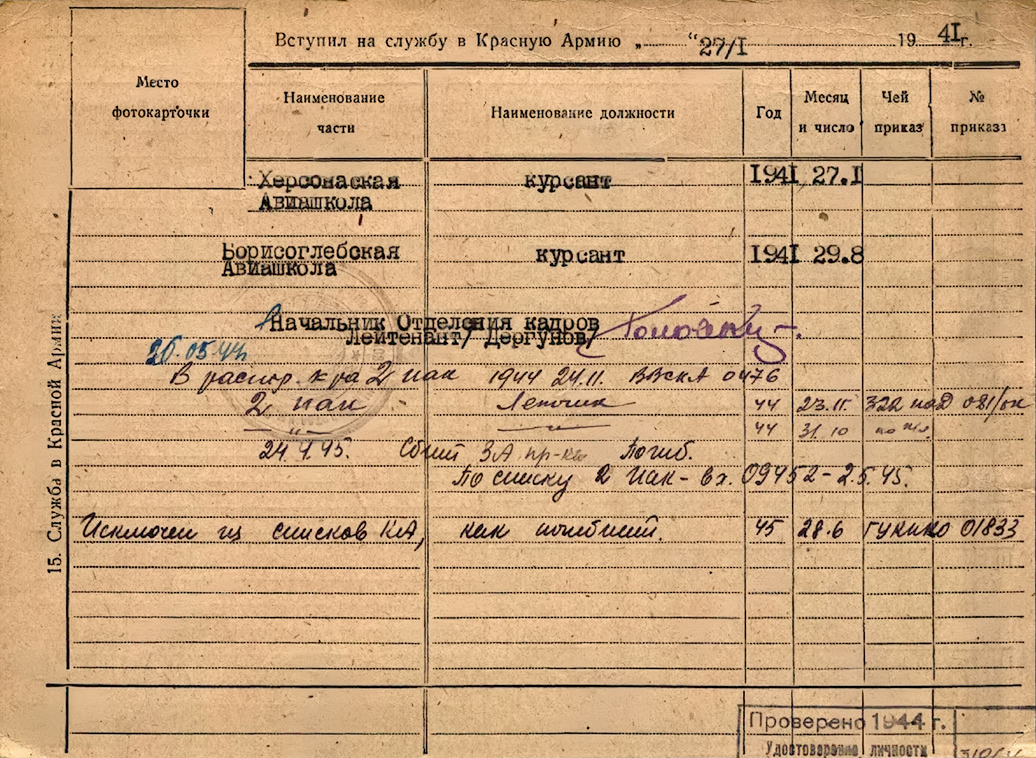 Вступил на службу в Красную Армию „ “ 27/I 1941г.
Место фотокарточки
Наименование части
Наименование должности
Год
Месяц и число
Чей приказ
№ приказа
Херсонаская Авиашкола курсант 1941 27.I
Борисоглебская Авиашкола курсант 1941 29.8
Начальник Отделения кадров
Лейтенант/ Дергунов/
26.05.44
В распор. к-ра 2 иак 1944 24.11. ВВСКА 0476
2 иак Летчик 44 23.11. 322 иад 081/ок
" " 44 31.10
24.4.45. Сбит ЗА пр-ка Погиб.
По списку 2 иак - вх. 09452 - 2.5.45.
Исключен из списков КА, как погибший. 45 28.6 ГУКНКО 01833
15. Служба в Красной Армии
Проверено 1944 г.
Удостоверение личности